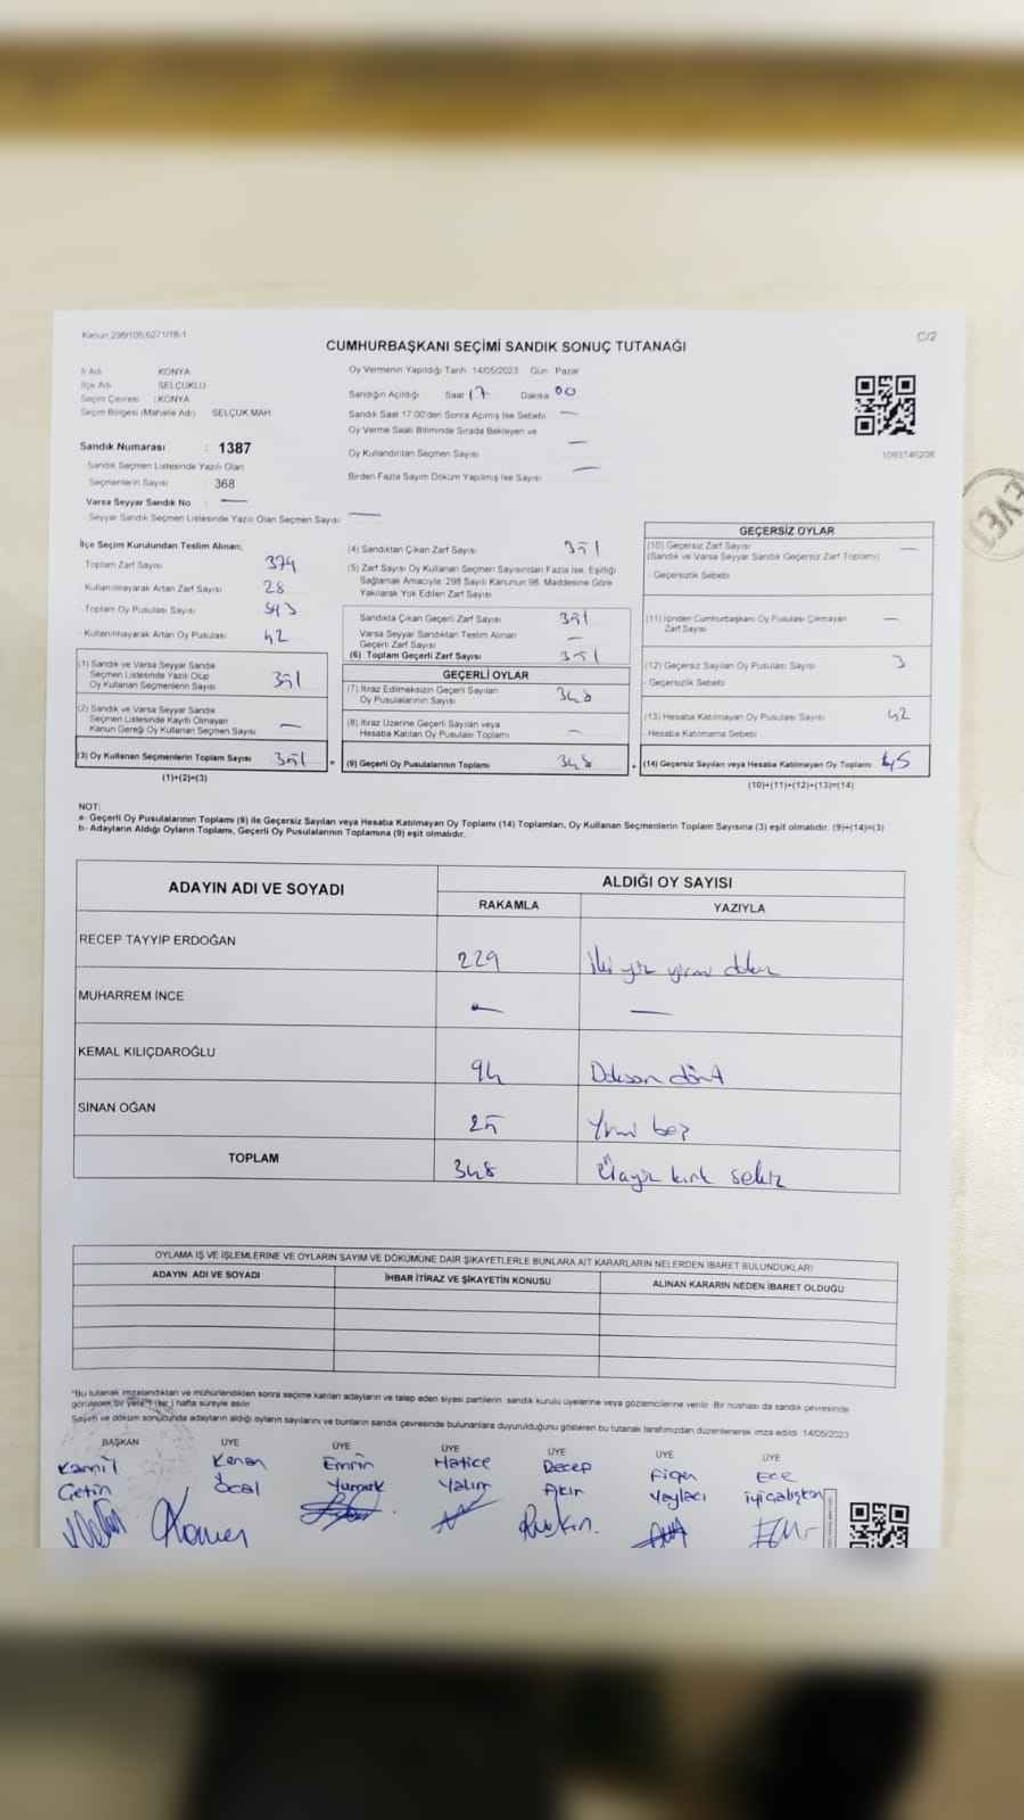 Kanun 298/105;6271/18-1
C/2
CUMHURBAŞKANI SEÇİMİ SANDIK SONUÇ TUTANAĞI
İl Adı KONYA
İlçe Adı SELÇUKLU
Seçim Çevresi : KONYA
Seçim Bölgesi (Mahalle Adı) SELÇUK MAH.
Sandık Numarası : 1387
Sandık Seçmen Listesinde Yazılı Olan
Seçmenlerin Sayısı 368
Varsa Seyyar Sandık No : —
Seyyar Sandık Seçmen Listesinde Yazılı Olan Seçmen Sayısı —
Oy Vermenin Yapıldığı Tarih 14/05/2023 Gün Pazar
Sandığın Açıldığı Saat 17 Dakika 00
Sandık Saat 17.00'den Sonra Açılmış İse Sebebi —
Oy Verme Saati Bitiminde Sırada Bekleyen ve
Oy Kullandırılan Seçmen Sayısı —
Birden Fazla Sayım Döküm Yapılmış İse Sayısı —
1093740208
EVET
İlçe Seçim Kurulundan Teslim Alınan;
Toplam Zarf Sayısı
Kullanılmayarak Artan Zarf Sayısı 28
Toplam Oy Pusulası Sayısı
Kullanılmayarak Artan Oy Pusulası 42
(1) Sandık ve Varsa Seyyar Sandık
Seçmen Listesinde Yazılı Olup
Oy Kullanan Seçmenlerin Sayısı 351
(2) Sandık ve Varsa Seyyar Sandık
Seçmen Listesinde Kayıtlı Olmayan
Kanun Gereği Oy Kullanan Seçmen Sayısı —
(3) Oy Kullanan Seçmenlerin Toplam Sayısı 351
(1)+(2)=(3)
(4) Sandıktan Çıkan Zarf Sayısı 351
(5) Zarf Sayısı Oy Kullanan Seçmen Sayısından Fazla İse, Eşitliği
Sağlamak Amacıyla 298 Sayılı Kanunun 98. Maddesine Göre
Yakılarak Yok Edilen Zarf Sayısı
Sandıkta Çıkan Geçerli Zarf Sayısı 351
Varsa Seyyar Sandıktan Teslim Alınan
Geçerli Zarf Sayısı —
(6) Toplam Geçerli Zarf Sayısı 351
GEÇERLİ OYLAR
(7) İtiraz Edilmeksizin Geçerli Sayılan
Oy Pusulalarının Sayısı 348
(8) İtiraz Üzerine Geçerli Sayılan veya
Hesaba Katılan Oy Pusulası Toplamı —
(9) Geçerli Oy Pusulalarının Toplamı 348
GEÇERSİZ OYLAR
(10) Geçersiz Zarf Sayısı —
(Sandık ve Varsa Seyyar Sandık Geçersiz Zarf Toplamı)
Geçersizlik Sebebi
(11) İçinden Cumhurbaşkanı Oy Pusulası Çıkmayan —
Zarf Sayısı
(12) Geçersiz Sayılan Oy Pusulası Sayısı 3
Geçersizlik Sebebi
(13) Hesaba Katılmayan Oy Pusulası Sayısı 42
Hesaba Katılmama Sebebi
(14) Geçersiz Sayılan veya Hesaba Katılmayan Oy Toplamı 45
(10)+(11)+(12)+(13)=(14)
NOT:
a- Geçerli Oy Pusulalarının Toplamı (9) ile Geçersiz Sayılan veya Hesaba Katılmayan Oy Toplamı (14) Toplamları, Oy Kullanan Seçmenlerin Toplam Sayısına (3) eşit olmalıdır. (9)+(14)=(3)
b- Adayların Aldığı Oyların Toplamı, Geçerli Oy Pusulalarının Toplamına (9) eşit olmalıdır.
ADAYIN ADI VE SOYADI
ALDIĞI OY SAYISI
RAKAMLA YAZIYLA
RECEP TAYYİP ERDOĞAN 229 İki yüz yirmi dokuz
MUHARREM İNCE — —
KEMAL KILIÇDAROĞLU 94 Doksan dört
SİNAN OĞAN 25 Yirmi beş
TOPLAM 348 Üçyüz kırk sekiz
OYLAMA İŞ VE İŞLEMLERİNE VE OYLARIN SAYIM VE DÖKÜMÜNE DAİR ŞİKAYETLERLE BUNLARA AİT KARARLARIN NELERDEN İBARET BULUNDUKLARI
ADAYIN ADI VE SOYADI İHBAR İTİRAZ VE ŞİKAYETİN KONUSU ALINAN KARARIN NEDEN İBARET OLDUĞU
"Bu tutanak imzalandıktan ve mühürlendikten sonra seçime katılan adayların ve talep eden siyasi partilerin sandık kurulu üyelerine veya gözlemcilerine verilir. Bir nüshası da sandık çevresinde
görülecek bir yere 1 (bir) hafta süreyle asılır.
Sayım ve döküm sonucunda adayların aldığı oyların sayılarını ve bunların sandık çevresinde bulunanlara duyurulduğunu gösteren bu tutanak tarafımızdan düzenlenerek imza edildi. 14/05/2023
BAŞKAN ÜYE ÜYE ÜYE ÜYE ÜYE ÜYE
Kamil Kenan Emrin Hatice Recep Figen Ece
Çetin Öcal Yumak Yalım Akın Yaylacı İyiçalışkan